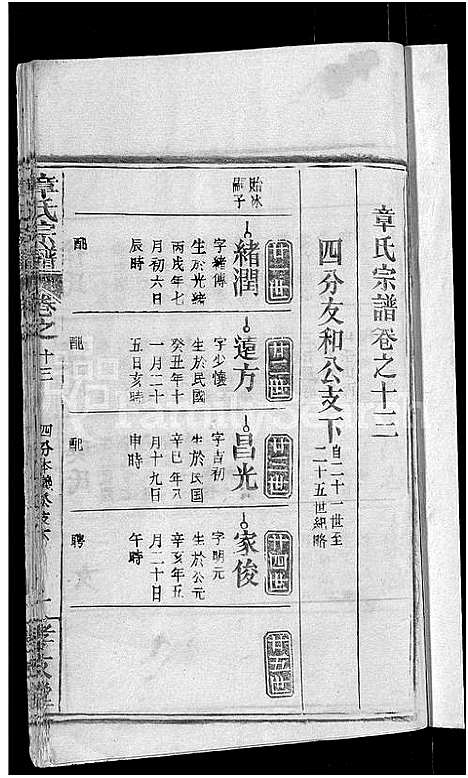 章氏宗譜卷之十三
四分友和公支下 自二十一世至
二十五世紀略
廿一世
貽冰
嗣子
緒潤
字緒傳
生於光緒
丙戌年七
月初六日
辰時
配
廿二世
遠方
字少懷
生於民國
癸丑年十
一月二十
五日亥時
配
廿三世
昌光
字吉初
生於民国
辛巳年八
月十九日
申時
配
廿四世
家俊
字明元
生於公元
辛亥年五
月二十日
午時
聘
廿五世
章氏宗譜
卷之十三